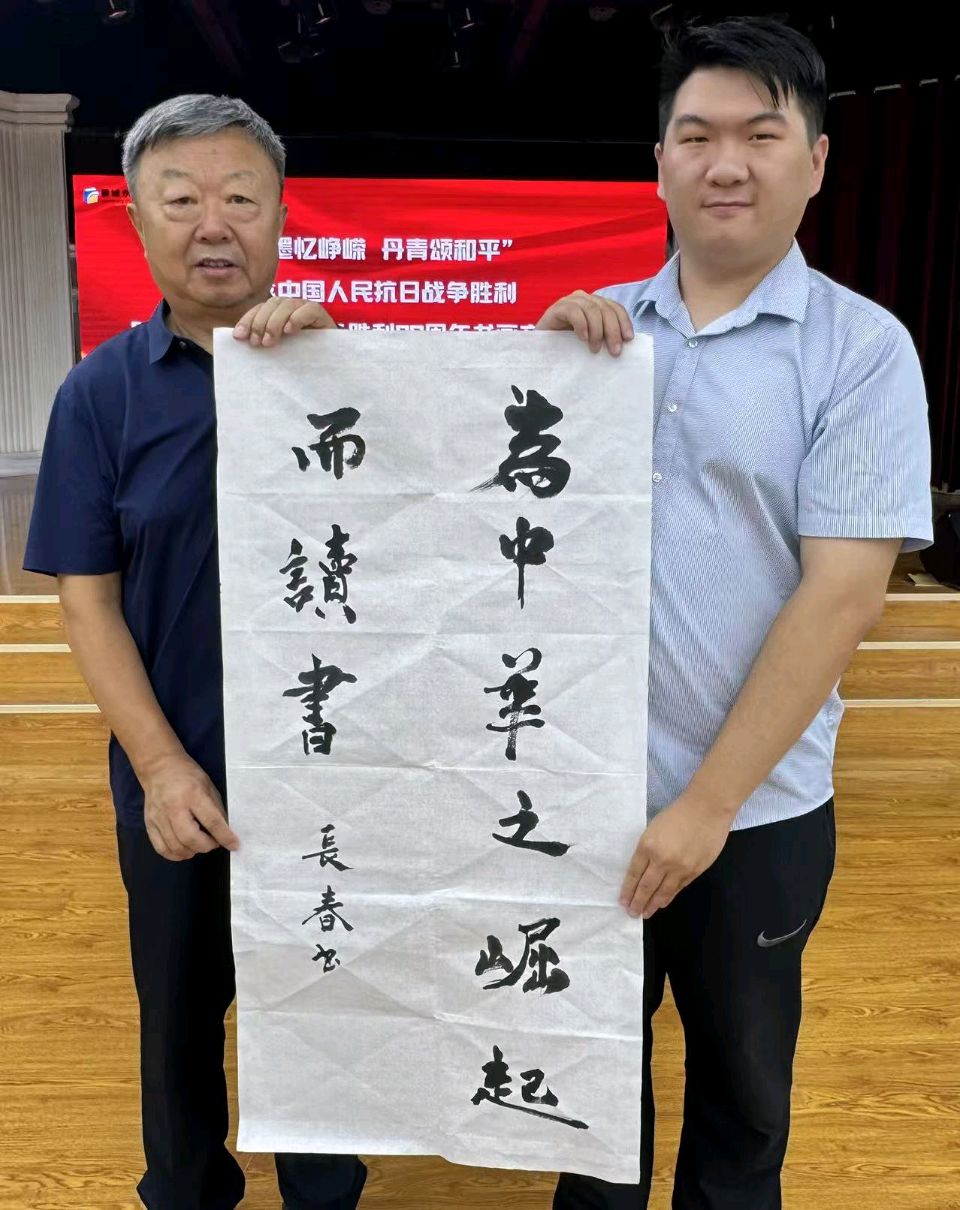 忆峥嵘 丹青颂和平”
中国人民抗日战争胜利
為中華之崛起
而讀書
長春书